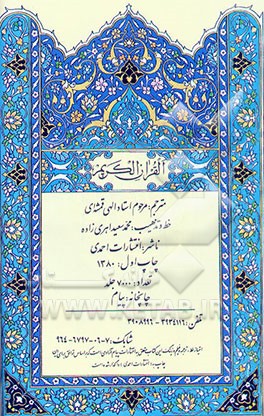 القرآن الكريم
مترجم: مرحوم استاد الهی قمشه‌ای
خط و تذهیب: محمد سعید اهری زاده
ناشر: انتشارات احمدی
چاپ اول: ۱۳۸۰
تعداد: ۷۰۰۰ جلد
چاپخانه: پیام
تلفن: ۳۹۲۴۱۱۶ - ۳۹۰۸۹۹۶
شابک: ۷-۰۶-۶۷۹۷-۹۶۴